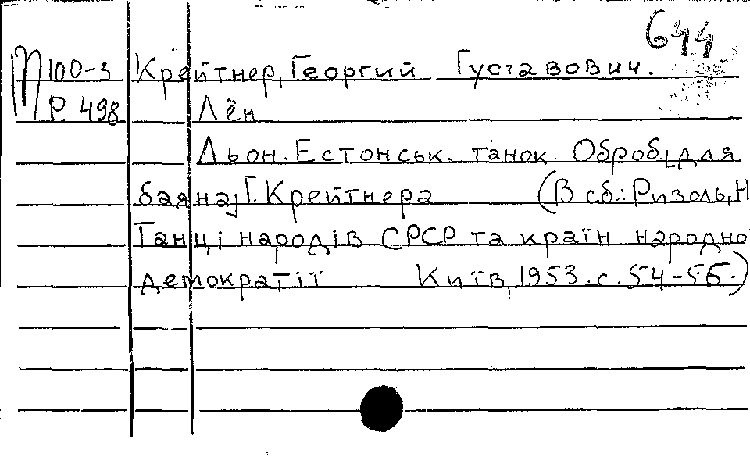 644
П100-3 Крейтнер, Георгий Густавович.
Р 498 Лён
Льон. Естонськ. танок Обробі для
баяна Г. Крейтнера (В сб.: Ризоль, Н
Танці народів СРСР та країн народно
демократії Київ, 1953. с. 54-56.)